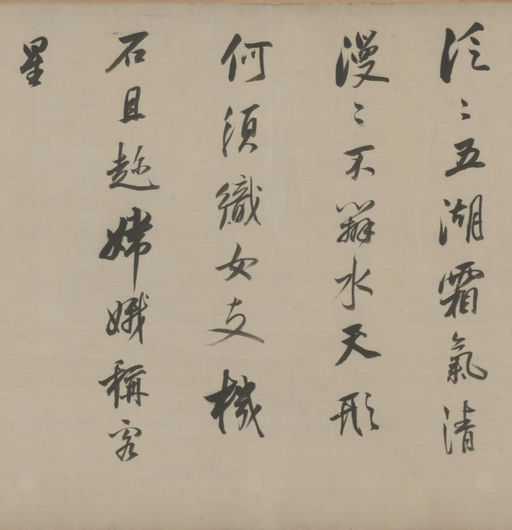 泛〻五湖霜氣清
漫〻不辨水天形
何須織女支機
石且趂嫦娥稱客
星